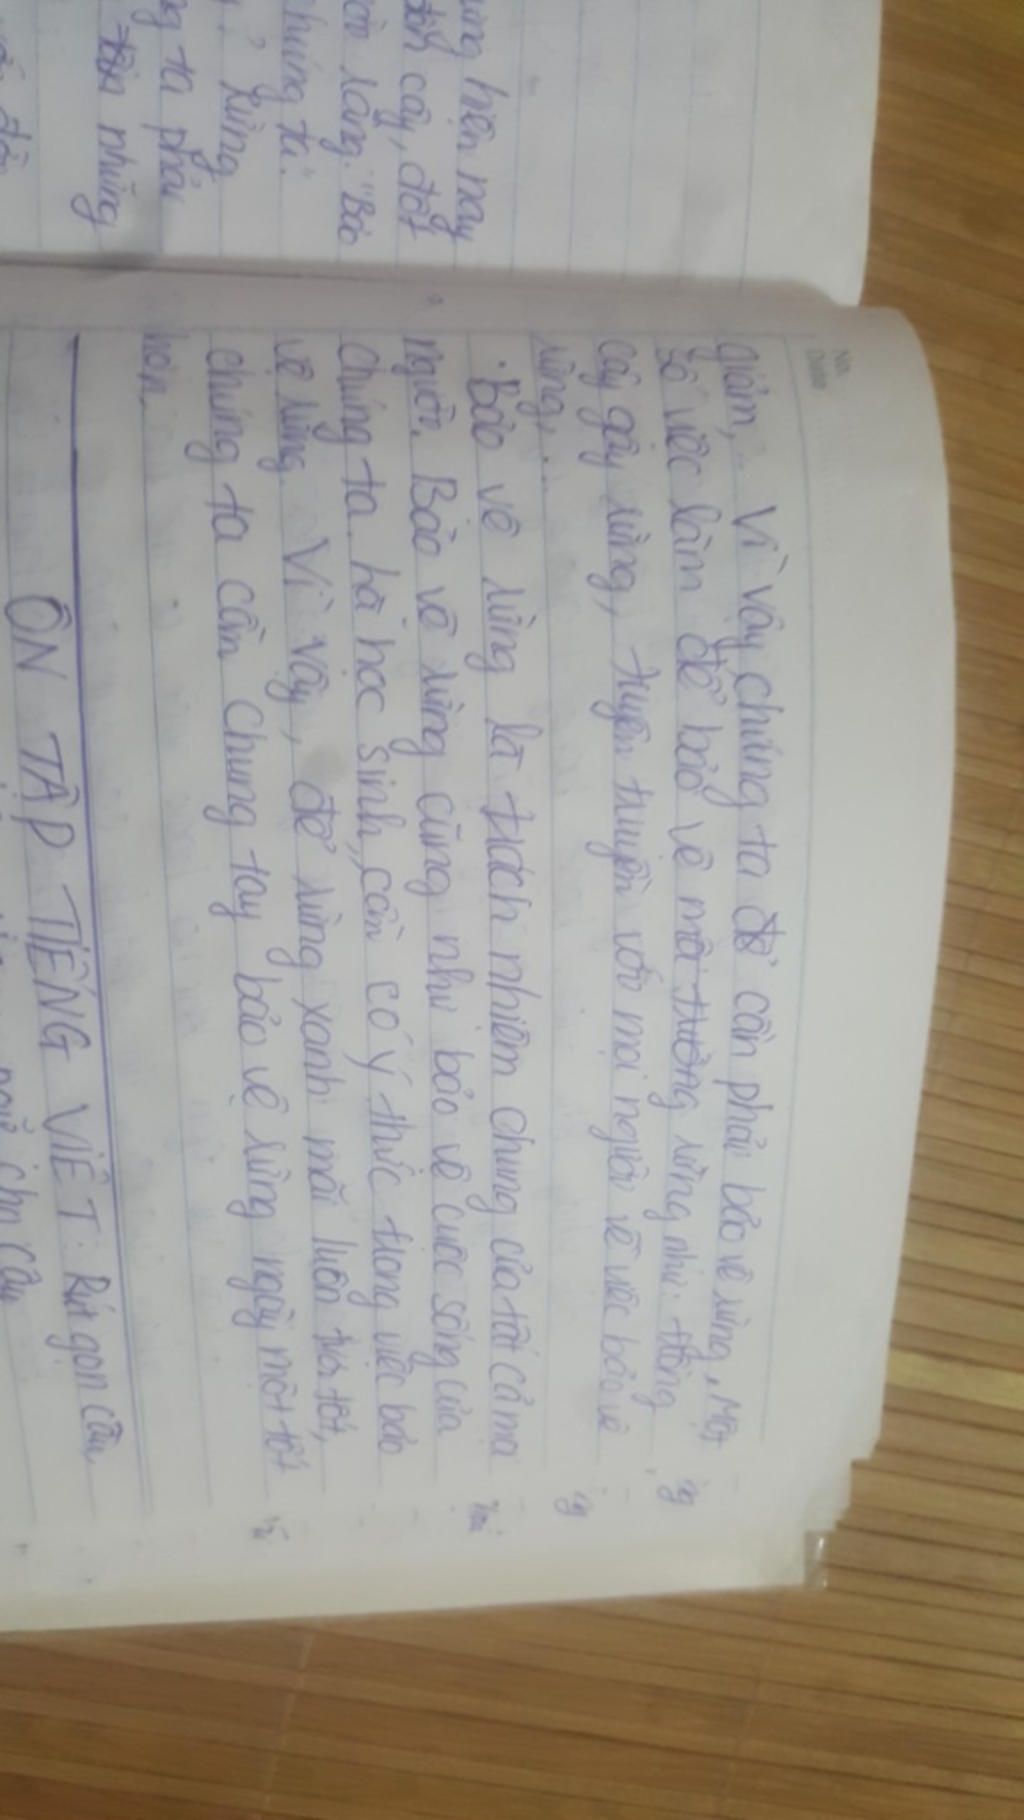 ừng hiện nay
đốn cây, đốt
còn rằng: "Bảo
chúng ta."
, rừng
ng ta phải
những
giảm,... Vì vậy chúng ta để cần phải bảo vệ rừng, một
số việc làm để bảo vệ môi trường rừng như: trồng
cây gây rừng, tuyên truyền với mọi người về việc bảo vệ
rừng,...
. Bảo vệ rừng là trách nhiệm chung của tất cả mọi
người. Bảo vệ rừng cũng như bảo vệ cuộc sống của
chúng ta. Là học sinh, cần có ý thức trong việc bảo
vệ rừng. Vì vậy, để rừng xanh mãi luôn tươi tốt,
chúng ta cần chung tay bảo vệ rừng ngày một tốt
hơn.
ÔN TẬP TIẾNG VIỆT: Rút gọn câu,
cho câu